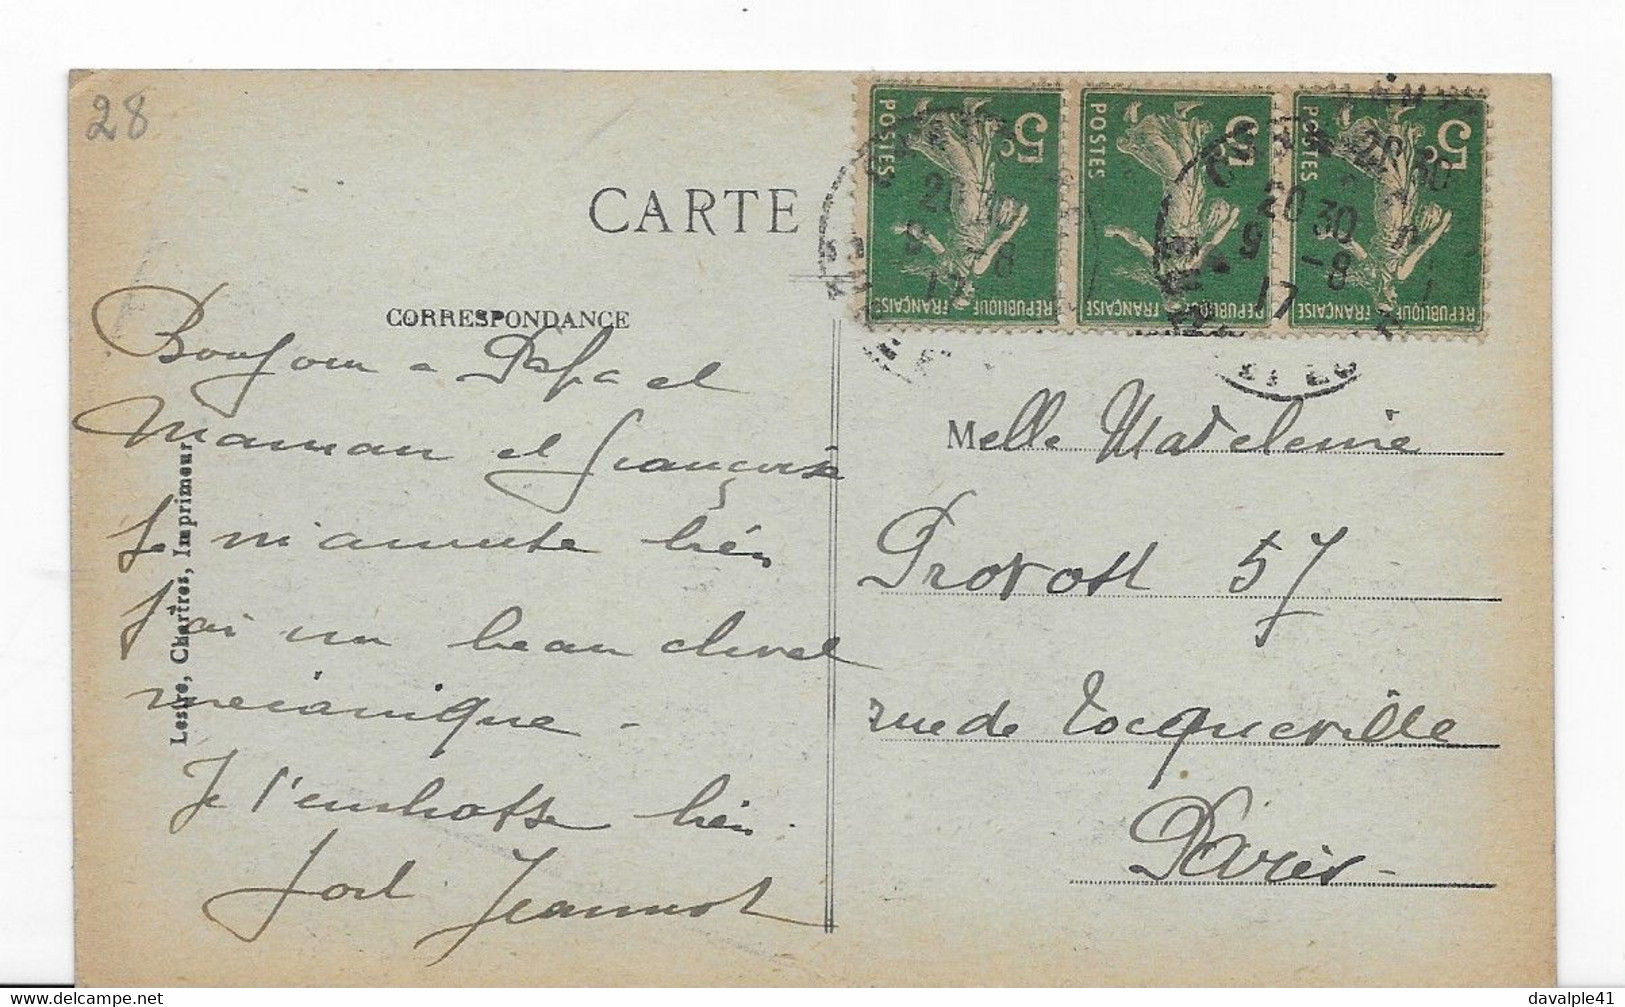 28
CARTE
CORRESPONDANCE
Bonjour a Papa et
Maman et françoise
Je m'amuse bien
J'ai un beau cheval
mecanique -
Je t'embrasse bien.
fort Jeannot
Lestre, Chartres, Imprimeur
5c
POSTES
REPUBLIQUE FRANÇAISE
5c
POSTES
REPUBLIQUE FRANÇAISE
5c
POSTES
REPUBLIQUE FRANÇAISE
20 30
9 -8
17
20 30
9 -8
17
Melle Madeleine
Provost 57
rue de Tocqueville
Paris -
davalple41